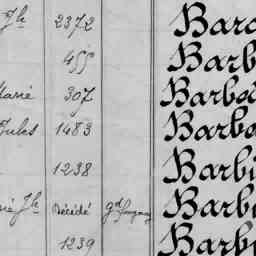 Jh 2372 Baro
455 Barb
Marie 307 Barbo
Jules 1483 Barbo
1238 Barbi
Jh Décédé Barb
1239 Barb